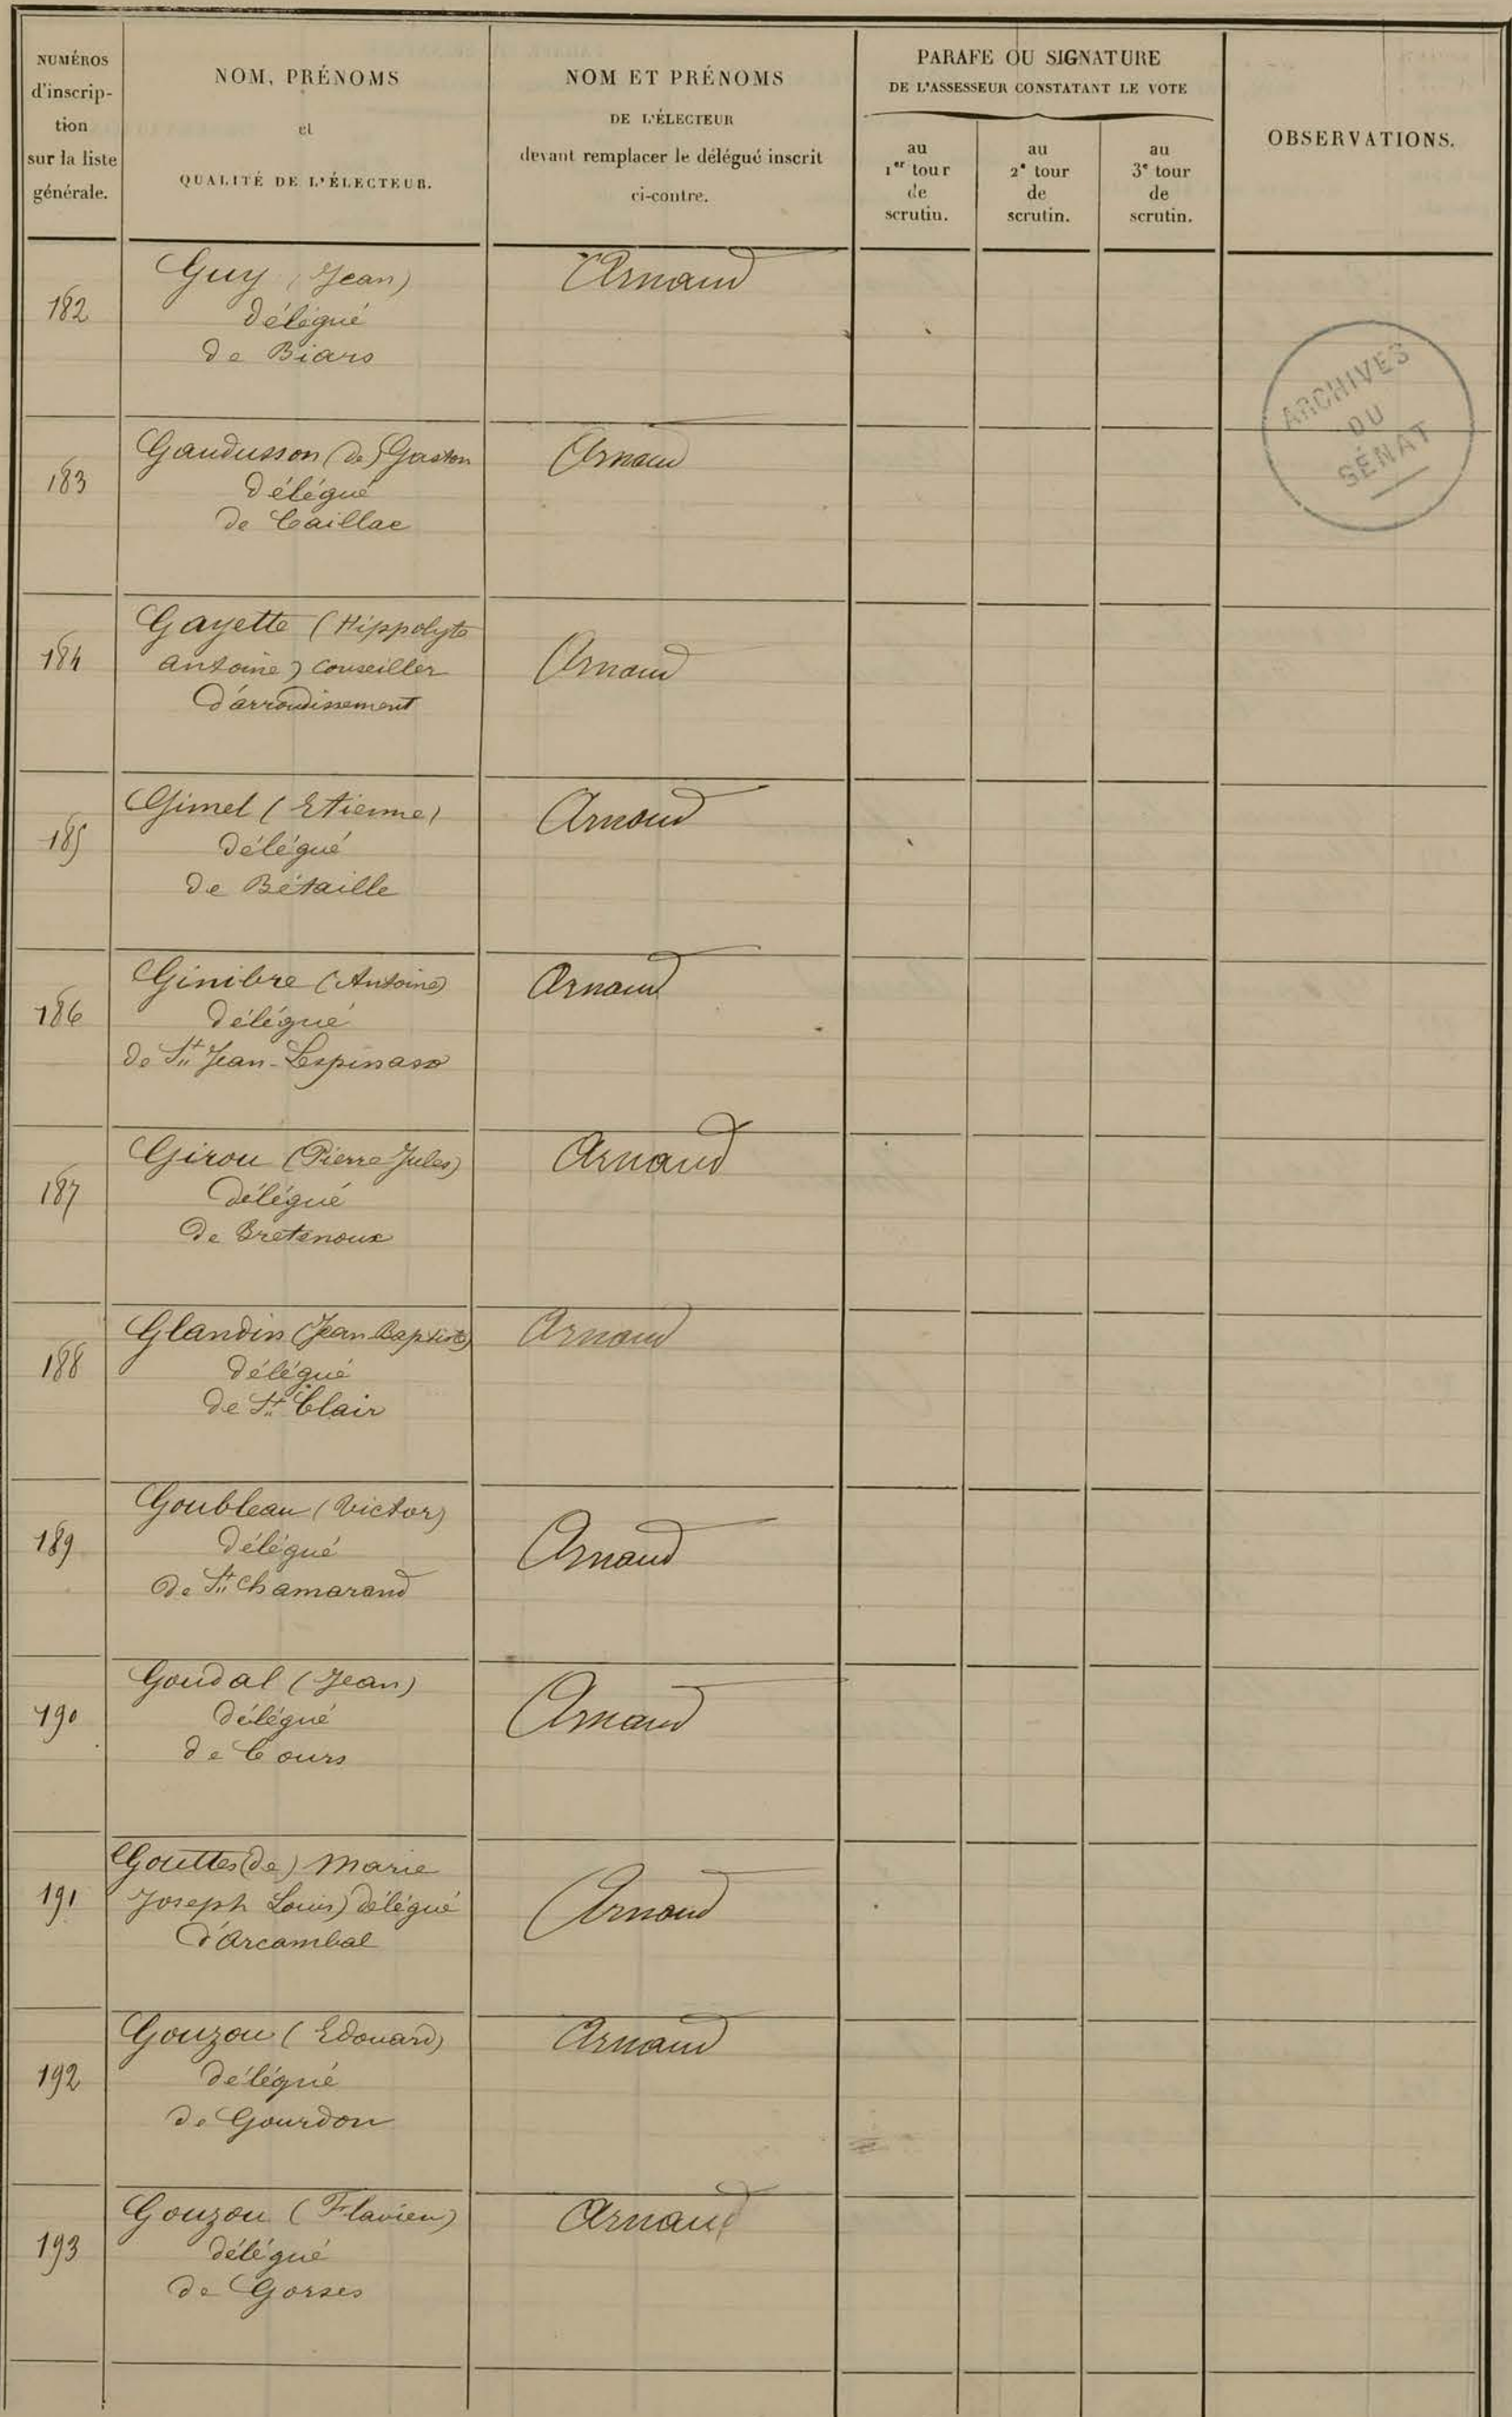 NUMÉROS
d'inscrip-
tion
sur la liste
générale.
NOM, PRÉNOMS
et
QUALITÉ DE L'ÉLECTEUR.
NOM ET PRÉNOMS
DE L'ÉLECTEUR
devant remplacer le délégué inscrit
ci-contre.
PARAFE OU SIGNATURE
DE L'ASSESSEUR CONSTATANT LE VOTE
au
1er tour
de
scrutin.
au
2e tour
de
scrutin.
au
3e tour
de
scrutin.
OBSERVATIONS.
182
Guy (Jean)
délégué
de Biars
Arnaud
ARCHIVES
DU
SÉNAT
183
Gaudusson (de) Gaston
délégué
de Caillac
Arnaud
184
Gayette (Hippolyte
Antoine) Conseiller
d'arrondissement
Arnaud
185
Gimel (Etienne)
délégué
de Bétaille
Arnaud
186
Ginibre (Antoine)
délégué
de St Jean-Lespinasse
Arnaud
187
Girou (Pierre Jules)
délégué
de Bretenoux
Arnaud
188
Glandin (Jean Baptiste)
délégué
de St Clair
Arnaud
189
Goubleau (Victor)
délégué
de St Chamarand
Arnaud
190
Goudal (Jean)
délégué
de Cours
Arnaud
191
Gouttes (de) Marie
Joseph Louis) délégué
d'Arcambal
Arnaud
192
Gouzou (Edouard)
délégué
de Gourdon
Arnaud
193
Gouzou (Flavien)
délégué
de Gorses
Arnaud